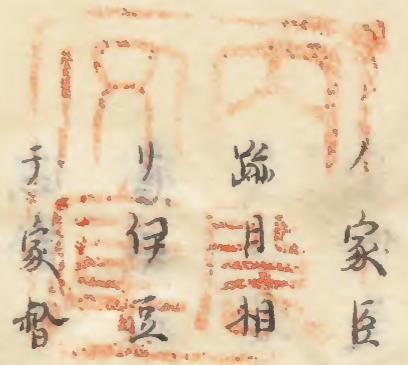 ノ家臣
跡目相
リ伊豆
テ家督